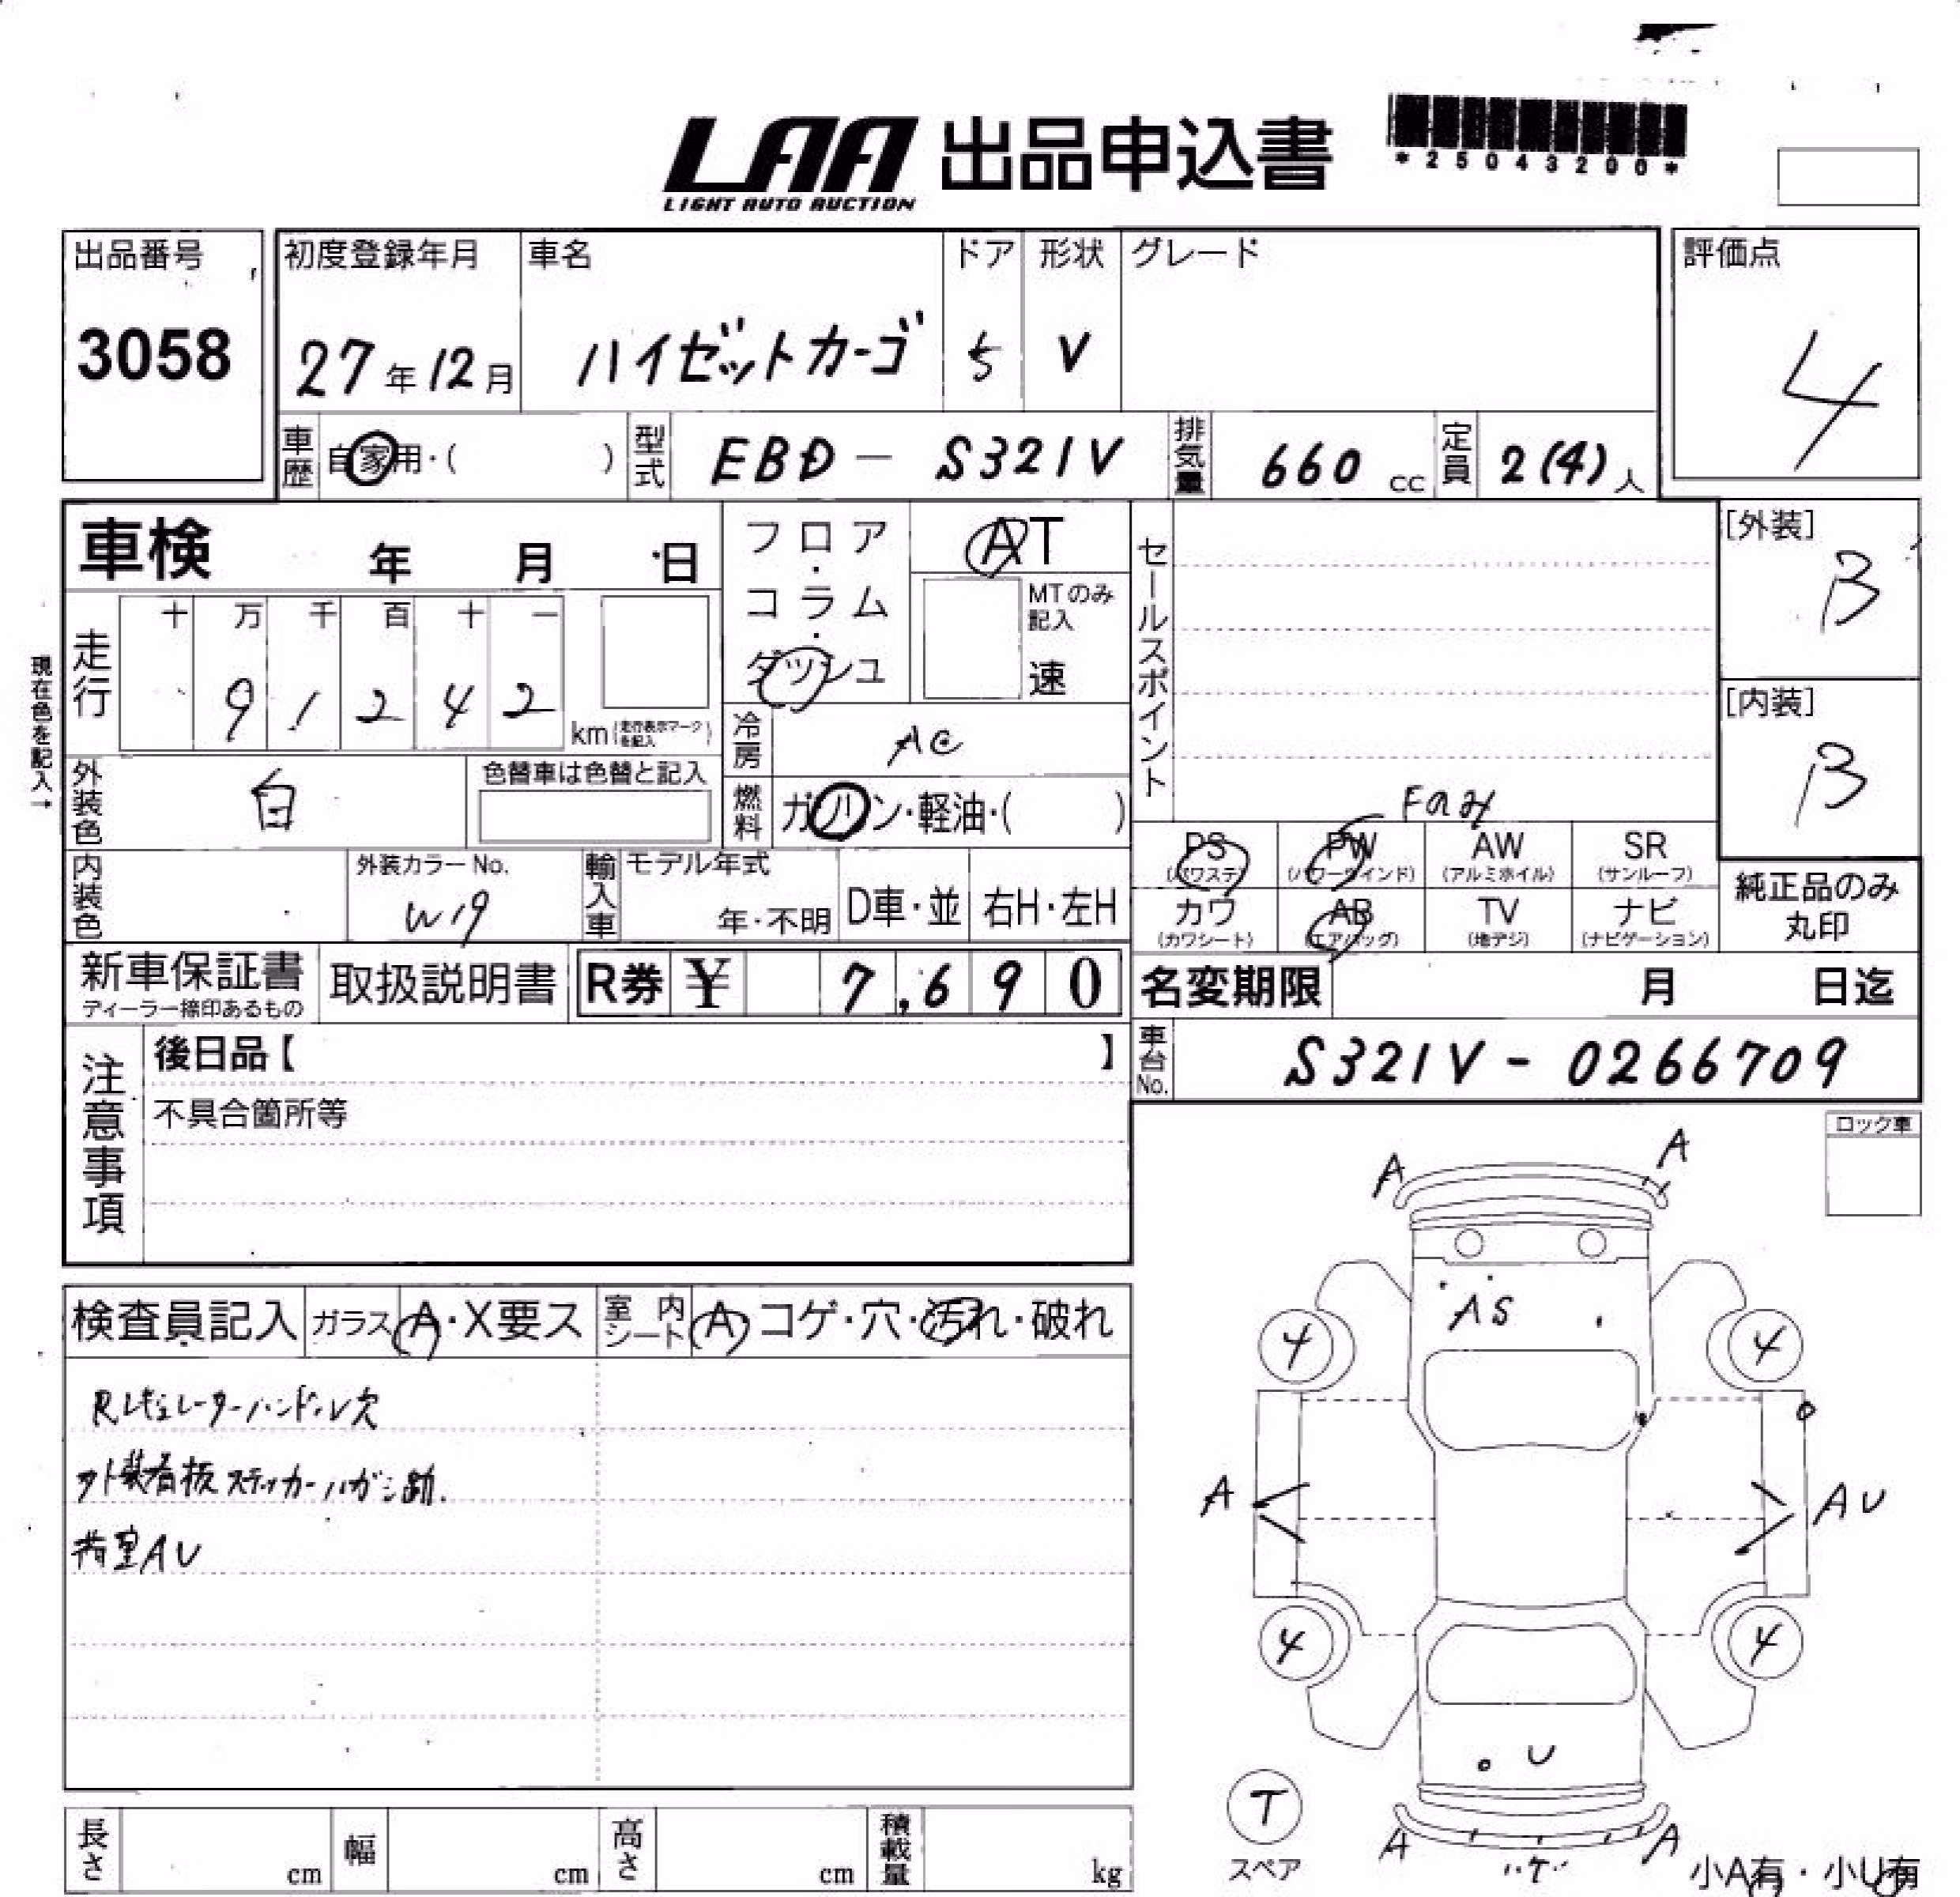 LAA 出品申込書
LIGHT AUTO AUCTION
*25043200*
出品番号
3058
初度登録年月
27年12月
車名
ハイゼットカーゴ
ドア
5
形状
V
グレード
評価点
4
車歴
自家用・( )
型式
EBD-S321V
排気量
660 cc
定員
2(4)人
車検 年 月 日
フロア・コラム・ダッシュ
AT
MTのみ記入
速
セールスポイント
Fのみ
[外装]
B
[内装]
B
現在色を記入→
走行
十 万 千 百 十 一
9 1 2 4 2
km(走行表示マークを記入)
冷房
AC
燃料
ガソリン・軽油・( )
外装色
白
色替車は色替と記入
内装色
外装カラーNo.
W19
輸入車
モデル年式
年・不明
D車・並
右H・左H
PS
(パワステ)
PW
(パワーウインド)
AW
(アルミホイル)
SR
(サンルーフ)
カワ
(カワシート)
AB
(エアバッグ)
TV
(地デジ)
ナビ
(ナビゲーション)
純正品のみ
丸印
新車保証書
ディーラー捺印あるもの
取扱説明書
R券 ¥ 7,690
名変期限 月 日迄
車台No.
S321V-0266709
注意事項
後日品【 】
不具合箇所等
ロック車
検査員記入
ガラス
A・X要ス
室内シート
A・コゲ・穴・汚れ・破れ
Rレギュレーターハンドル欠
外装看板ステッカーハガシ跡.
荷室AU
A
A
AS
4
4
A
AU
4
4
U
T
スペア
A
A
ハゲ
小A有・小U有
長さ
cm
幅
cm
高さ
cm
積載量
kg